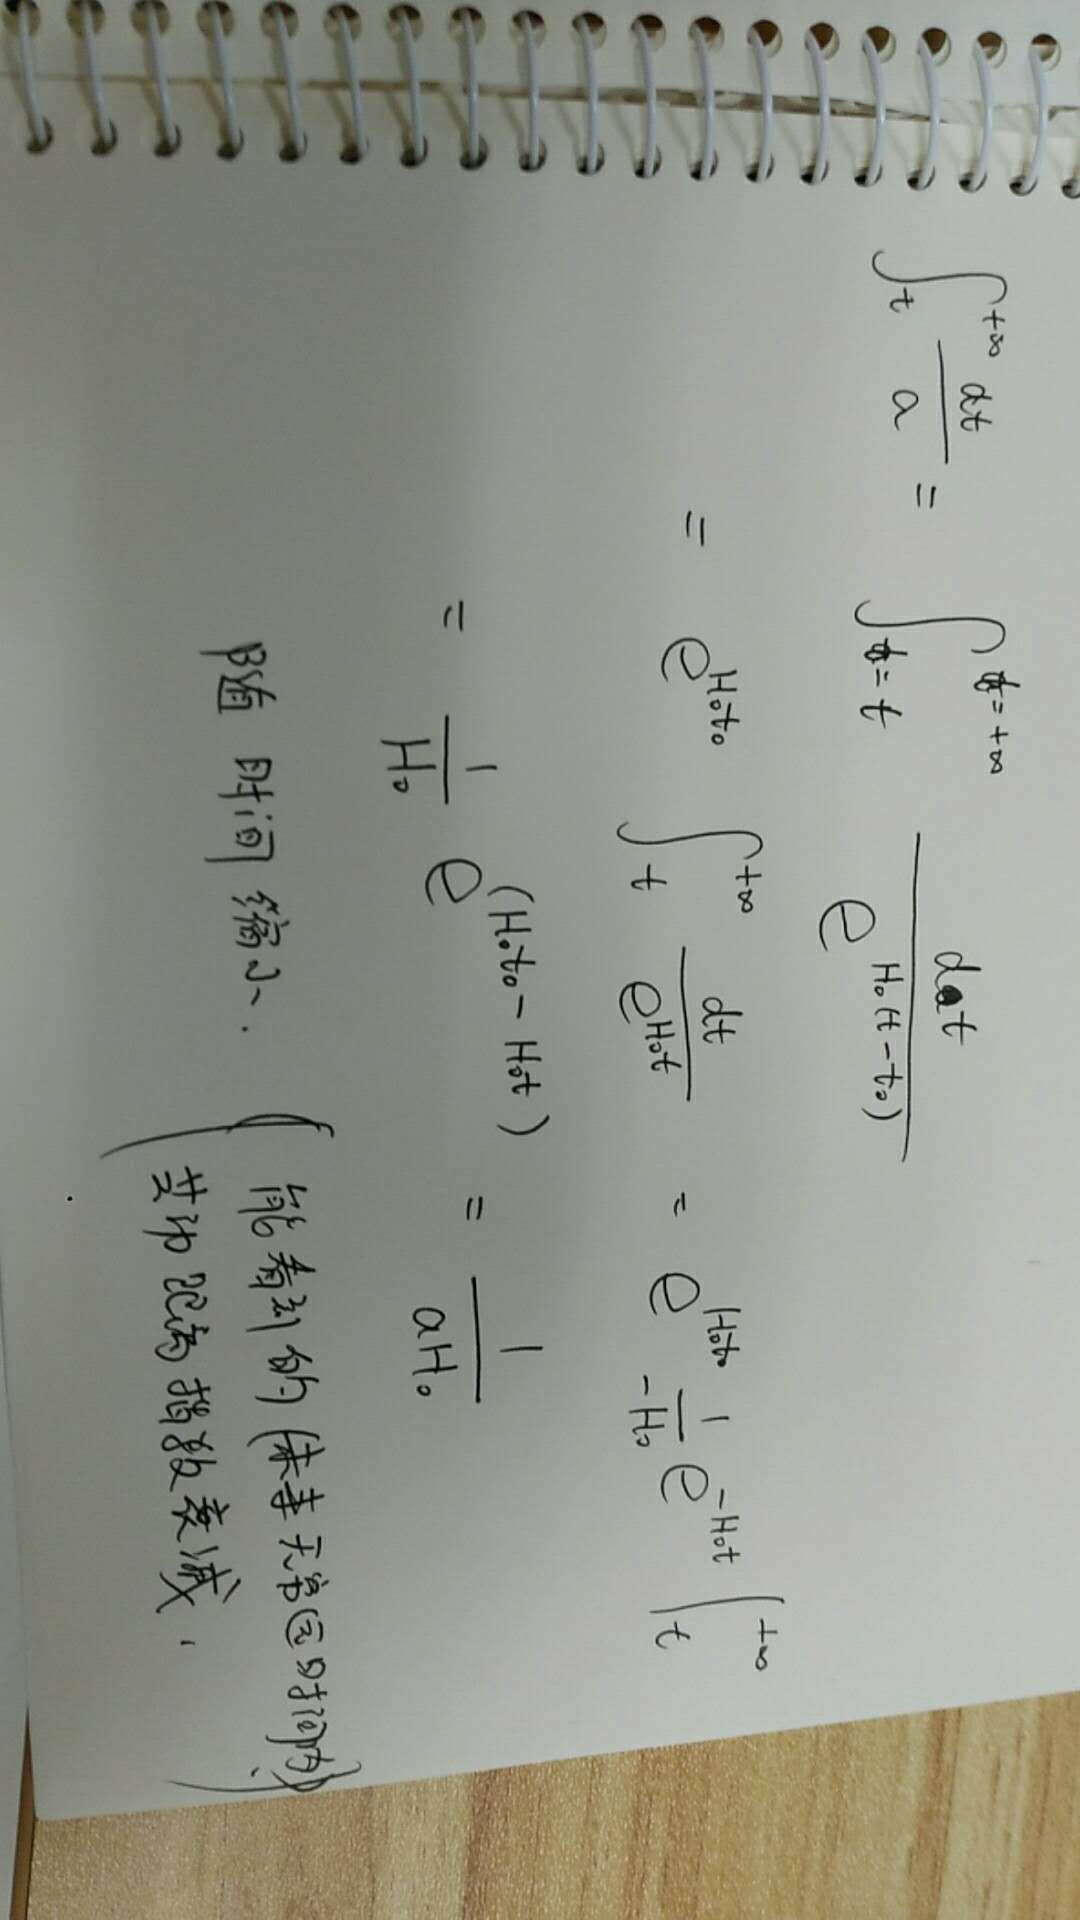 ∫_t^{+∞} dt/a = ∫_{t=t}^{t=+∞} dt/e^{H₀(t-t₀)}
= e^{H₀t₀} ∫_t^{+∞} dt/e^{H₀t} = e^{H₀t₀} 1/-H₀ e^{-H₀t} |_t^{+∞}
= 1/H₀ e^{(H₀t₀-H₀t)} = 1/aH₀
随时间缩小. (能看到的(未来无穷远时间内)
共动距离指数衰减.